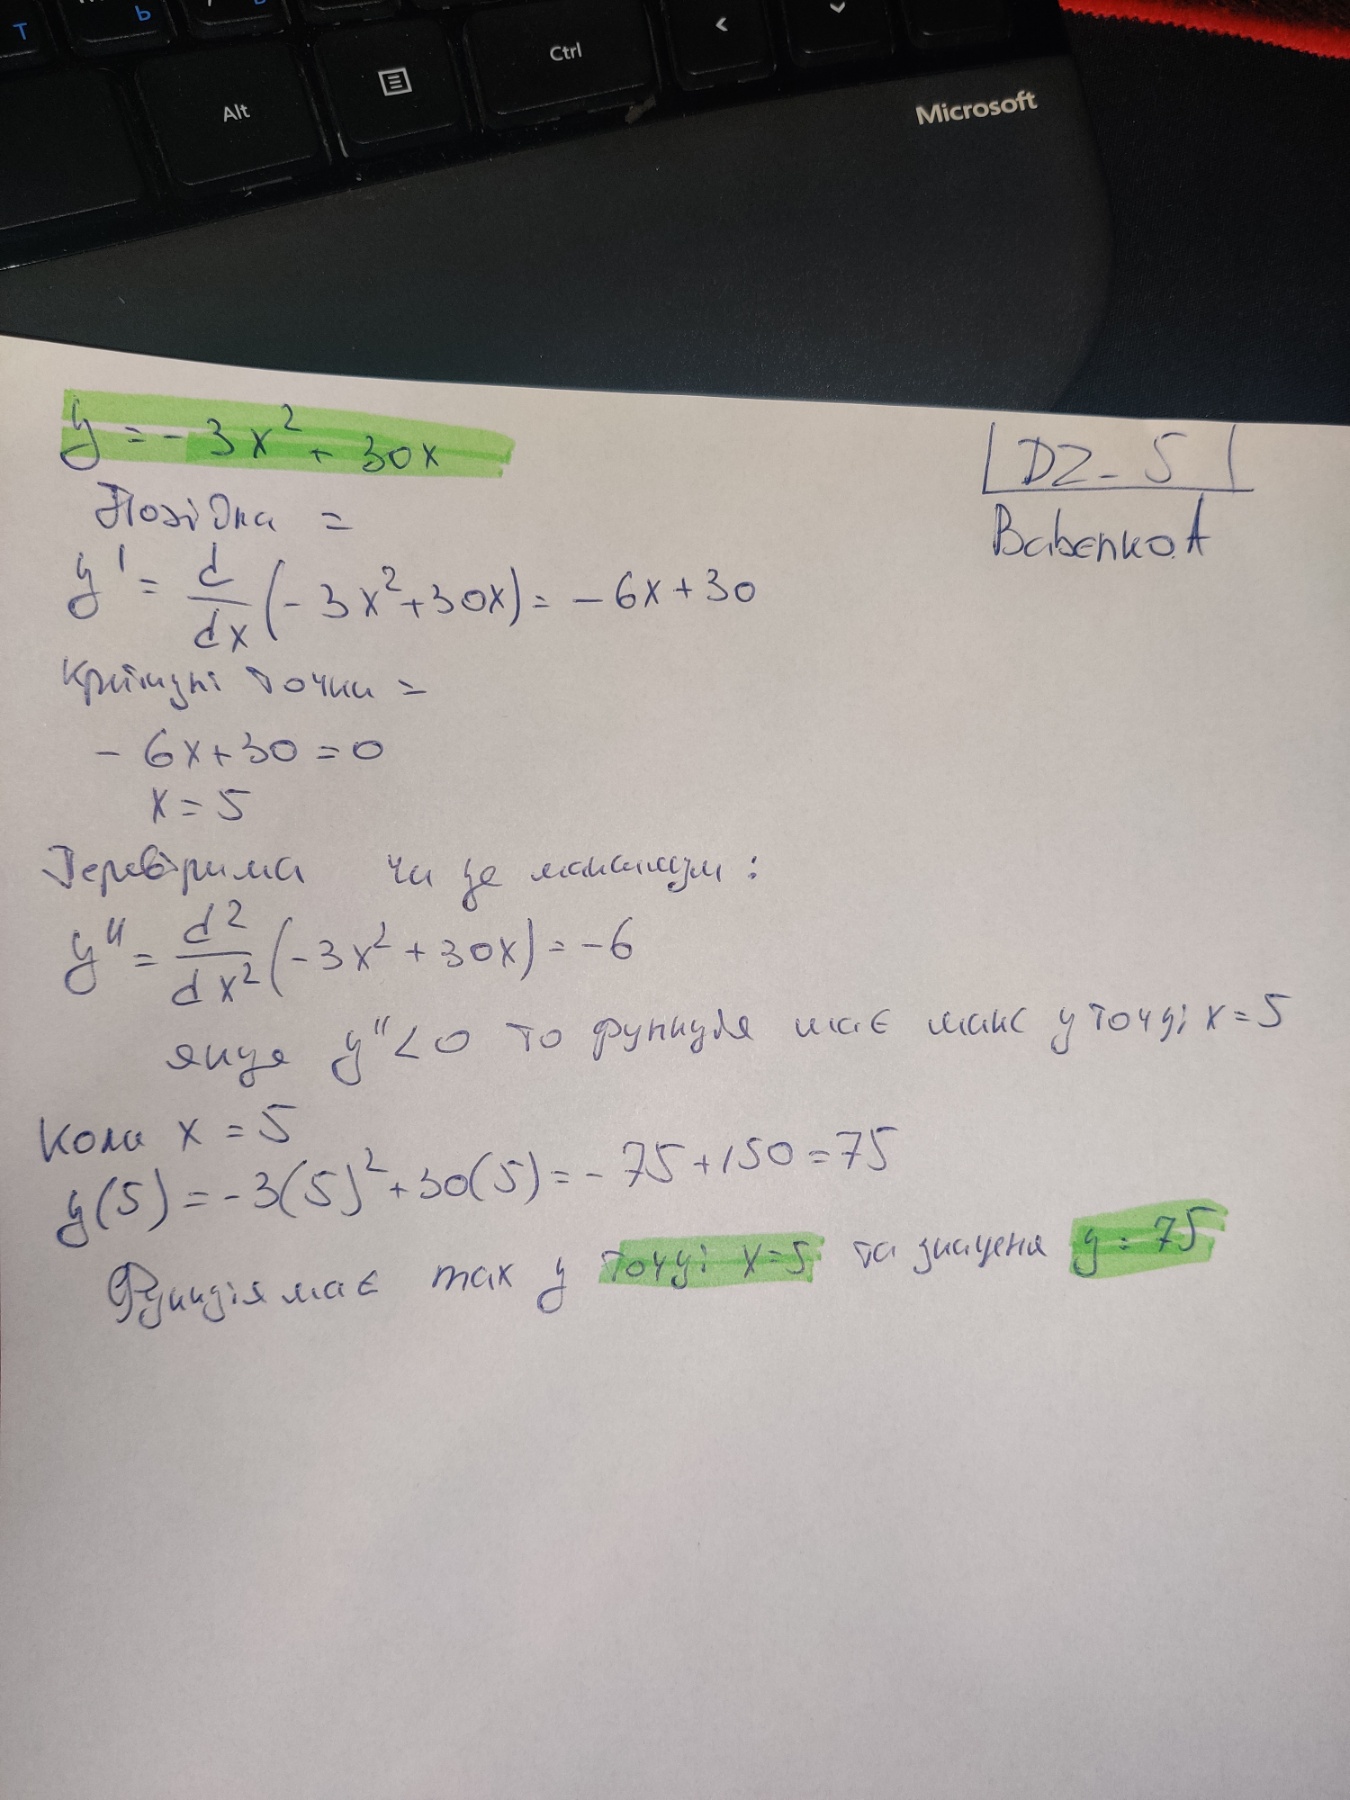 T
Ь
Alt
Ctrl
<
Microsoft
y = - 3x² + 30x
DZ - 5
Babenko.A
Похідна =
y' = d/dx (- 3x² + 30x) = - 6x + 30
Критичні точки =
- 6x + 30 = 0
x = 5
Перевірима чи це максимум :
y'' = d²/dx² (- 3x² + 30x) = - 6
якщо y'' < 0 то функція має макс у точці x = 5
Коли x = 5
y(5) = - 3(5)² + 30(5) = - 75 + 150 = 75
Функція має max у точці x = 5 та значеня y = 75